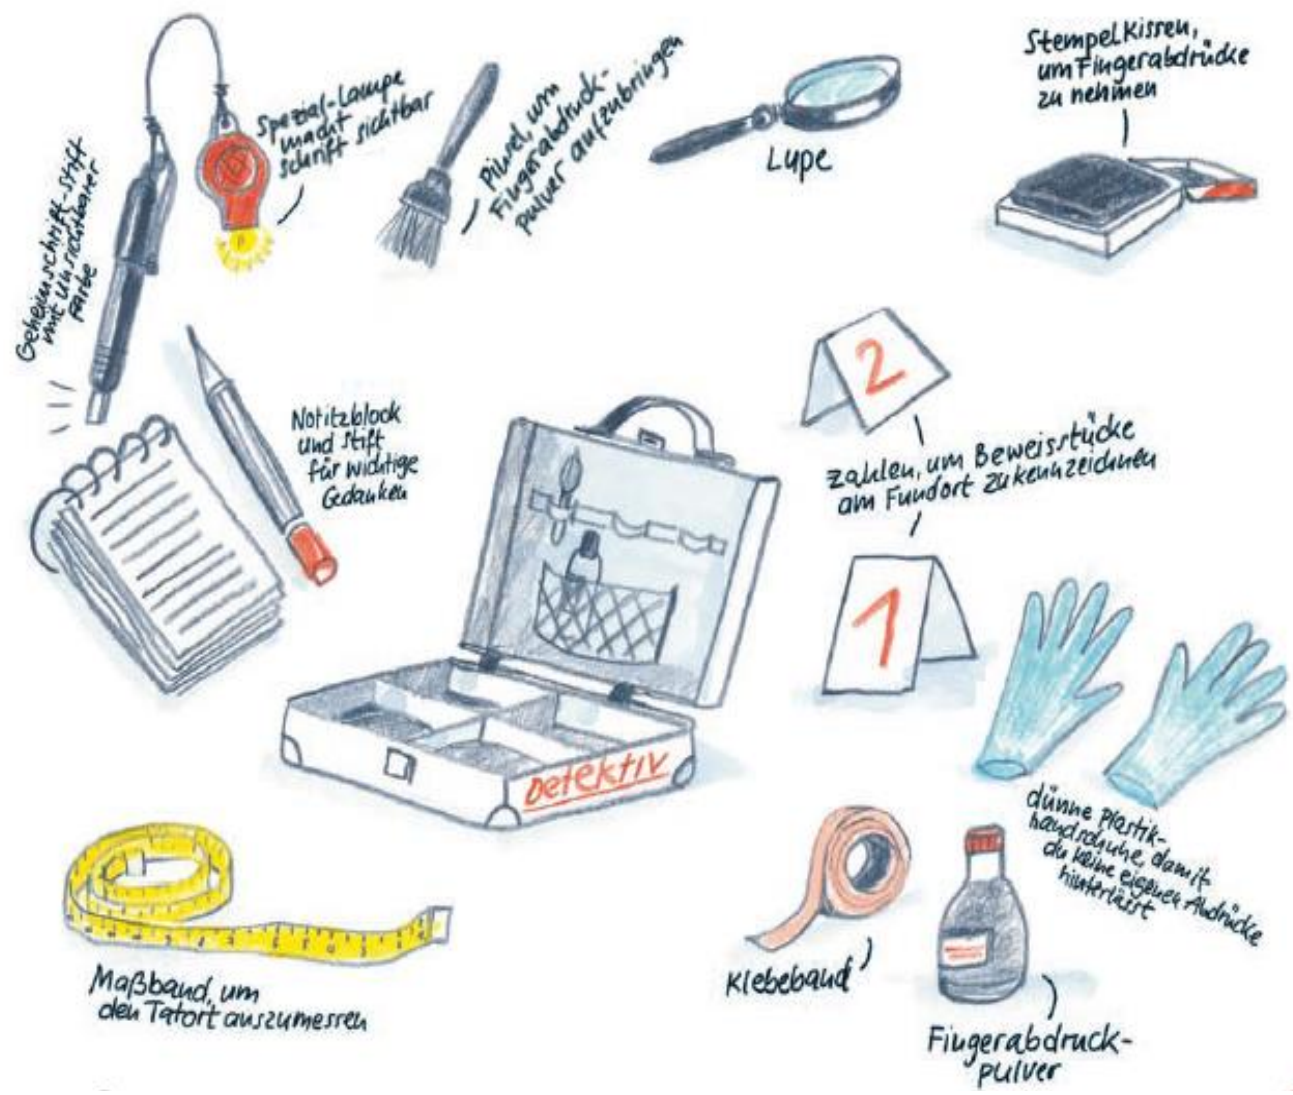 Spezial-Lampe
macht
schrift sichtbar
Geheimschrift-Stift
mit unsichtbarer
Farbe
Pinsel, um
Fingerabdruck-
pulver aufzubringen
Lupe
Stempelkissen,
um Fingerabdrücke
zu nehmen
Notitzblock
und Stift
für wichtige
Gedanken
2
zahlen, um Beweisstücke
am Fundort zu kennzeichnen
1
Detektiv
dünne Plastik-
handschuhe, damit
du keine eigenen Abdrücke
hinterlässt
Maßband, um
den Tatort auszumessen
Klebeband
Fingerabdruck-
pulver